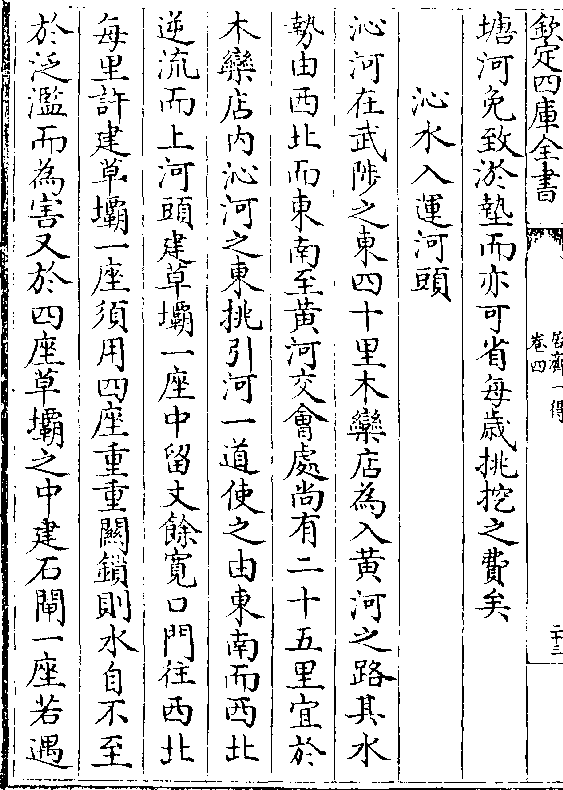 欽定四庫全書
居濟一得
卷四
二十三
塘河免致淤墊而亦可省每歲挑挖之費矣
沁水入運河頭
沁河在武陟之東四十里木欒店為入黃河之路其水
勢由西北而東南至黃河交會處尚有二十五里宜於
木欒店內沁河之東挑引河一道使之由東南而西北
逆流而上河頭建草壩一座中留丈餘寬口門往西北
每里許建草壩一座須用四座重重關鎖則水自不至
於泛濫而為害又於四座草壩之中建石閘一座若遇